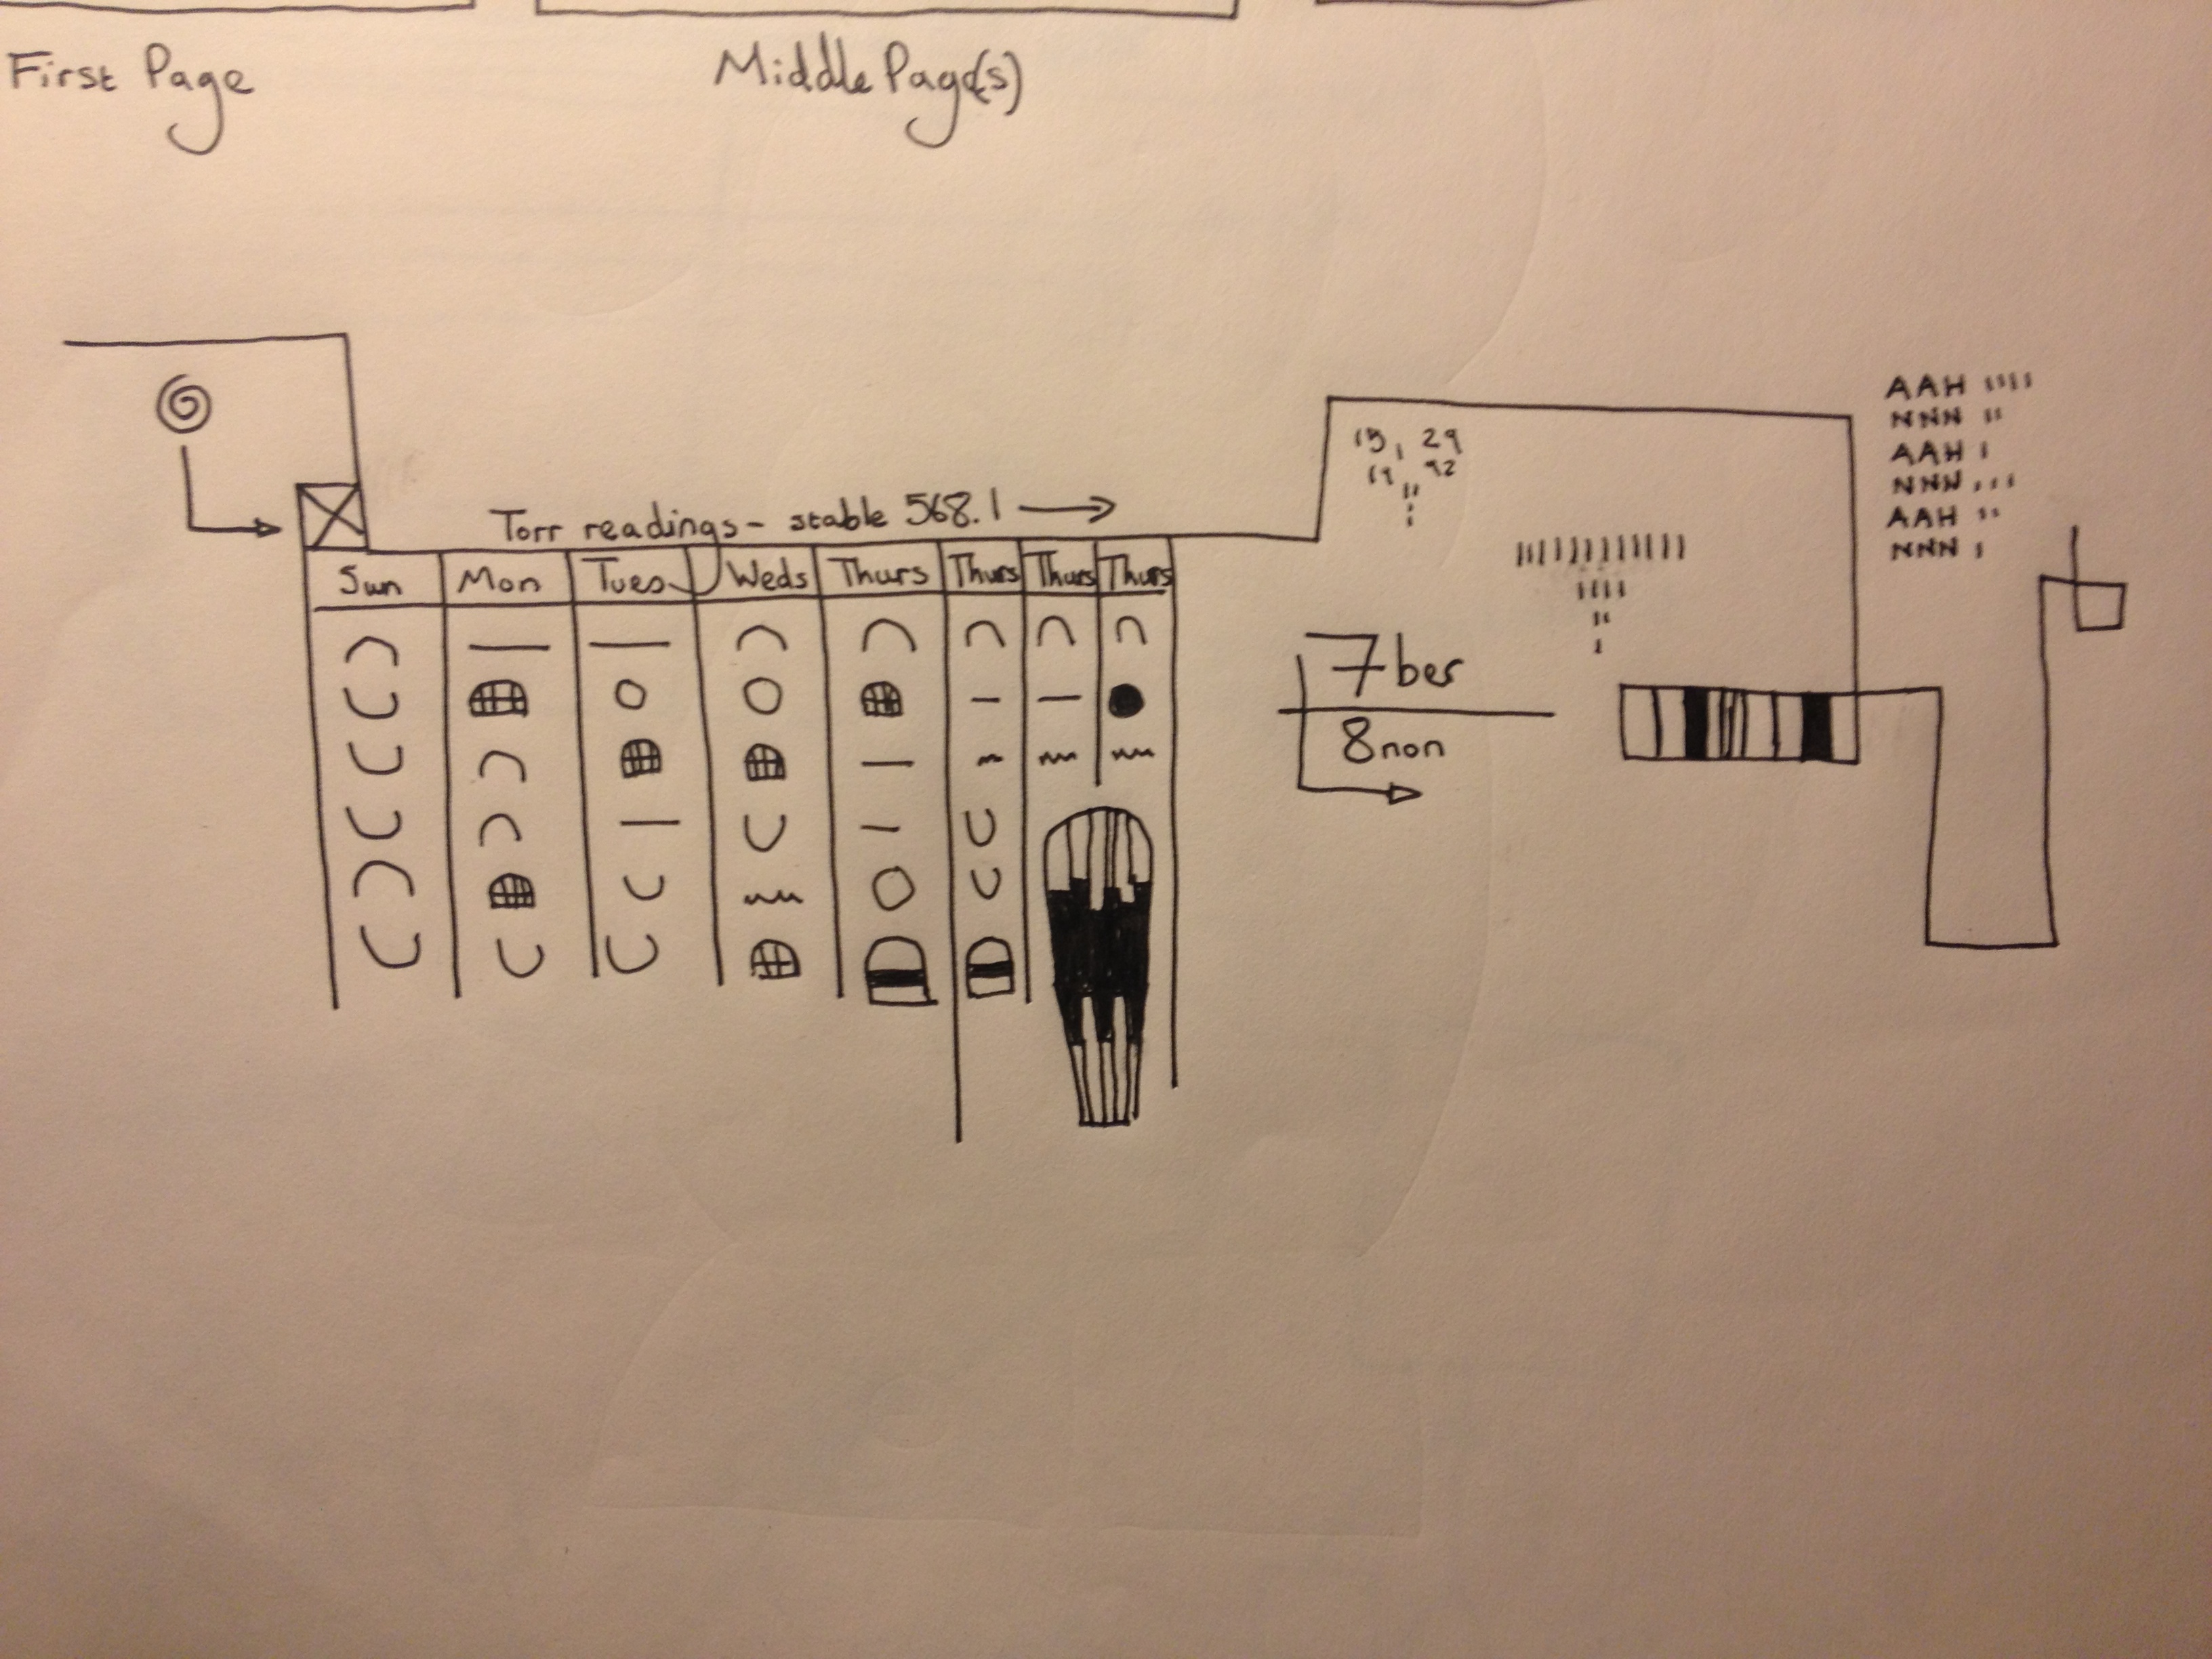 First Page
Middle Page(s)
Torr readings - stable 568.1
Sun Mon Tues Weds Thurs Thurs Thurs Thurs
15, 29
19 92
7ber
8non
AAH
NNN
AAH
NNN
AAH
NNN